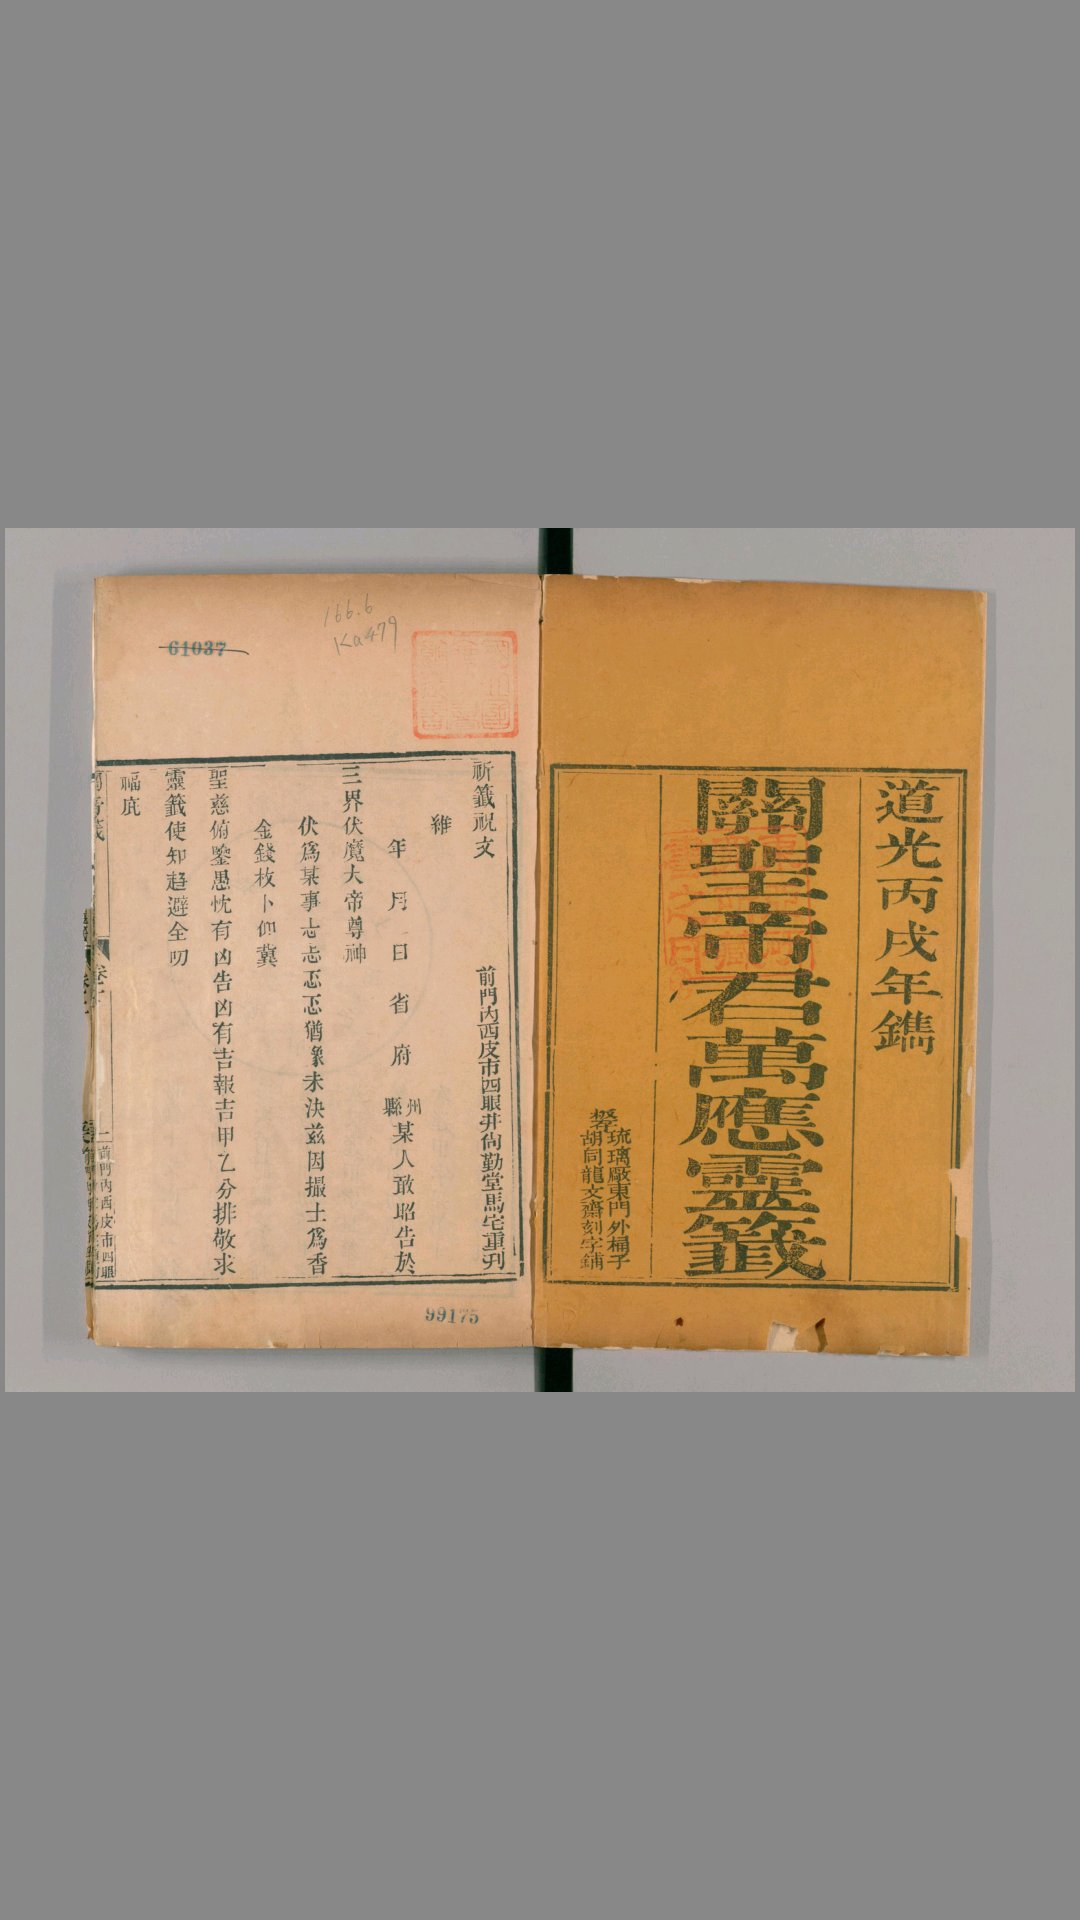 道光丙戌年鐫
關聖帝君萬應靈籤
琉璃廠東門外桶子
胡同龍文齋刻字鋪
166.6
Ka479
61037
祈籤祝文
前門內西皮市四眼井尙勤堂馬宅重刋
維
年 月 日 省 府 州縣某人敢昭告於
三界伏魔大帝尊神
伏爲某事忐忐忑忑猶豫未決茲因撮土爲香
金錢枚卜仰冀
聖慈俯鑒愚忱有凶告凶有吉報吉甲乙分排敬求
靈籤使知趋避全叨
福庇
卷一
前門內西皮市四眼
99175